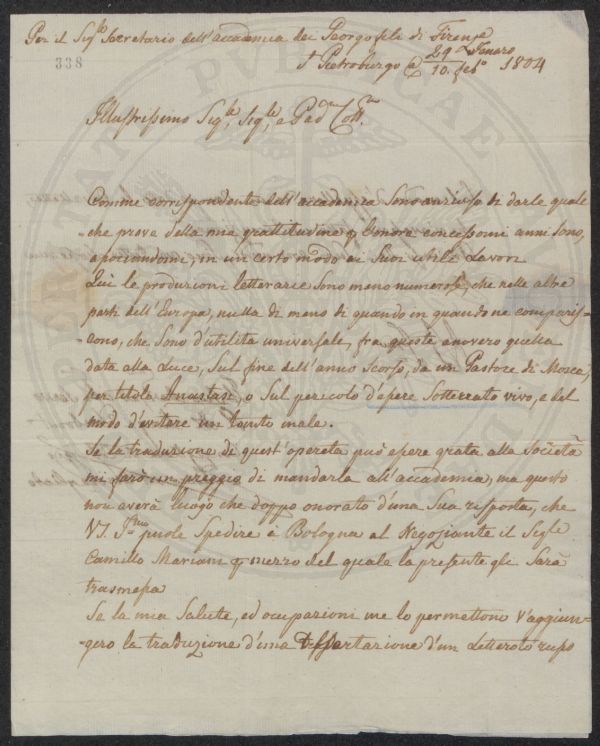 Per il Sig.le Secretario dell'accademia dei Georgofili di Firenze
338
S. Pietroburgo @ 29 Genero / 10 feb.o 1804
Illustrissimo Sig.le, Sig.le e Pad.n Coll.mo
Comme corrispondente dell'accademia Sono anzioso di darle qual
-che prove della mia grattitudine p l'onore concessomi anni Sono,
apociandome, in un certo modo ai Suoi utili Lavori
Qui le produzioni letterarie Sono meno numerose, che nelle altre
parti dell'Europa, nulla di meno di quando in quando ne comparis-
-cono, che Sono d'utilita universale, fra queste anovero quella
data alla Luce, Sul fine dell'anno Scorso, da un Pastore di Mosca,
per titolo Anastasi, o Sul pericolo d'essere Sotterrato vivo, e del
modo d'evitare un tanto male.
Se la traduzione di quest'opereta può essere grata alla Società
mi farò un preggio di mandarla all'accademia, ma questo
non averà luogo che doppo onorato d'una Sua risposta, che
VS. Ill.ma puole Spedire à Bologna al Negoziante il Sig.le
Camillo Mariani p mezzo del quale la presente gli Sarà
trasmessa
Se la mia Salute, ed ocupazioni me lo permettono v'aggiun-
-gero la traduzione d'una Dissertazione d'un Letterato russo